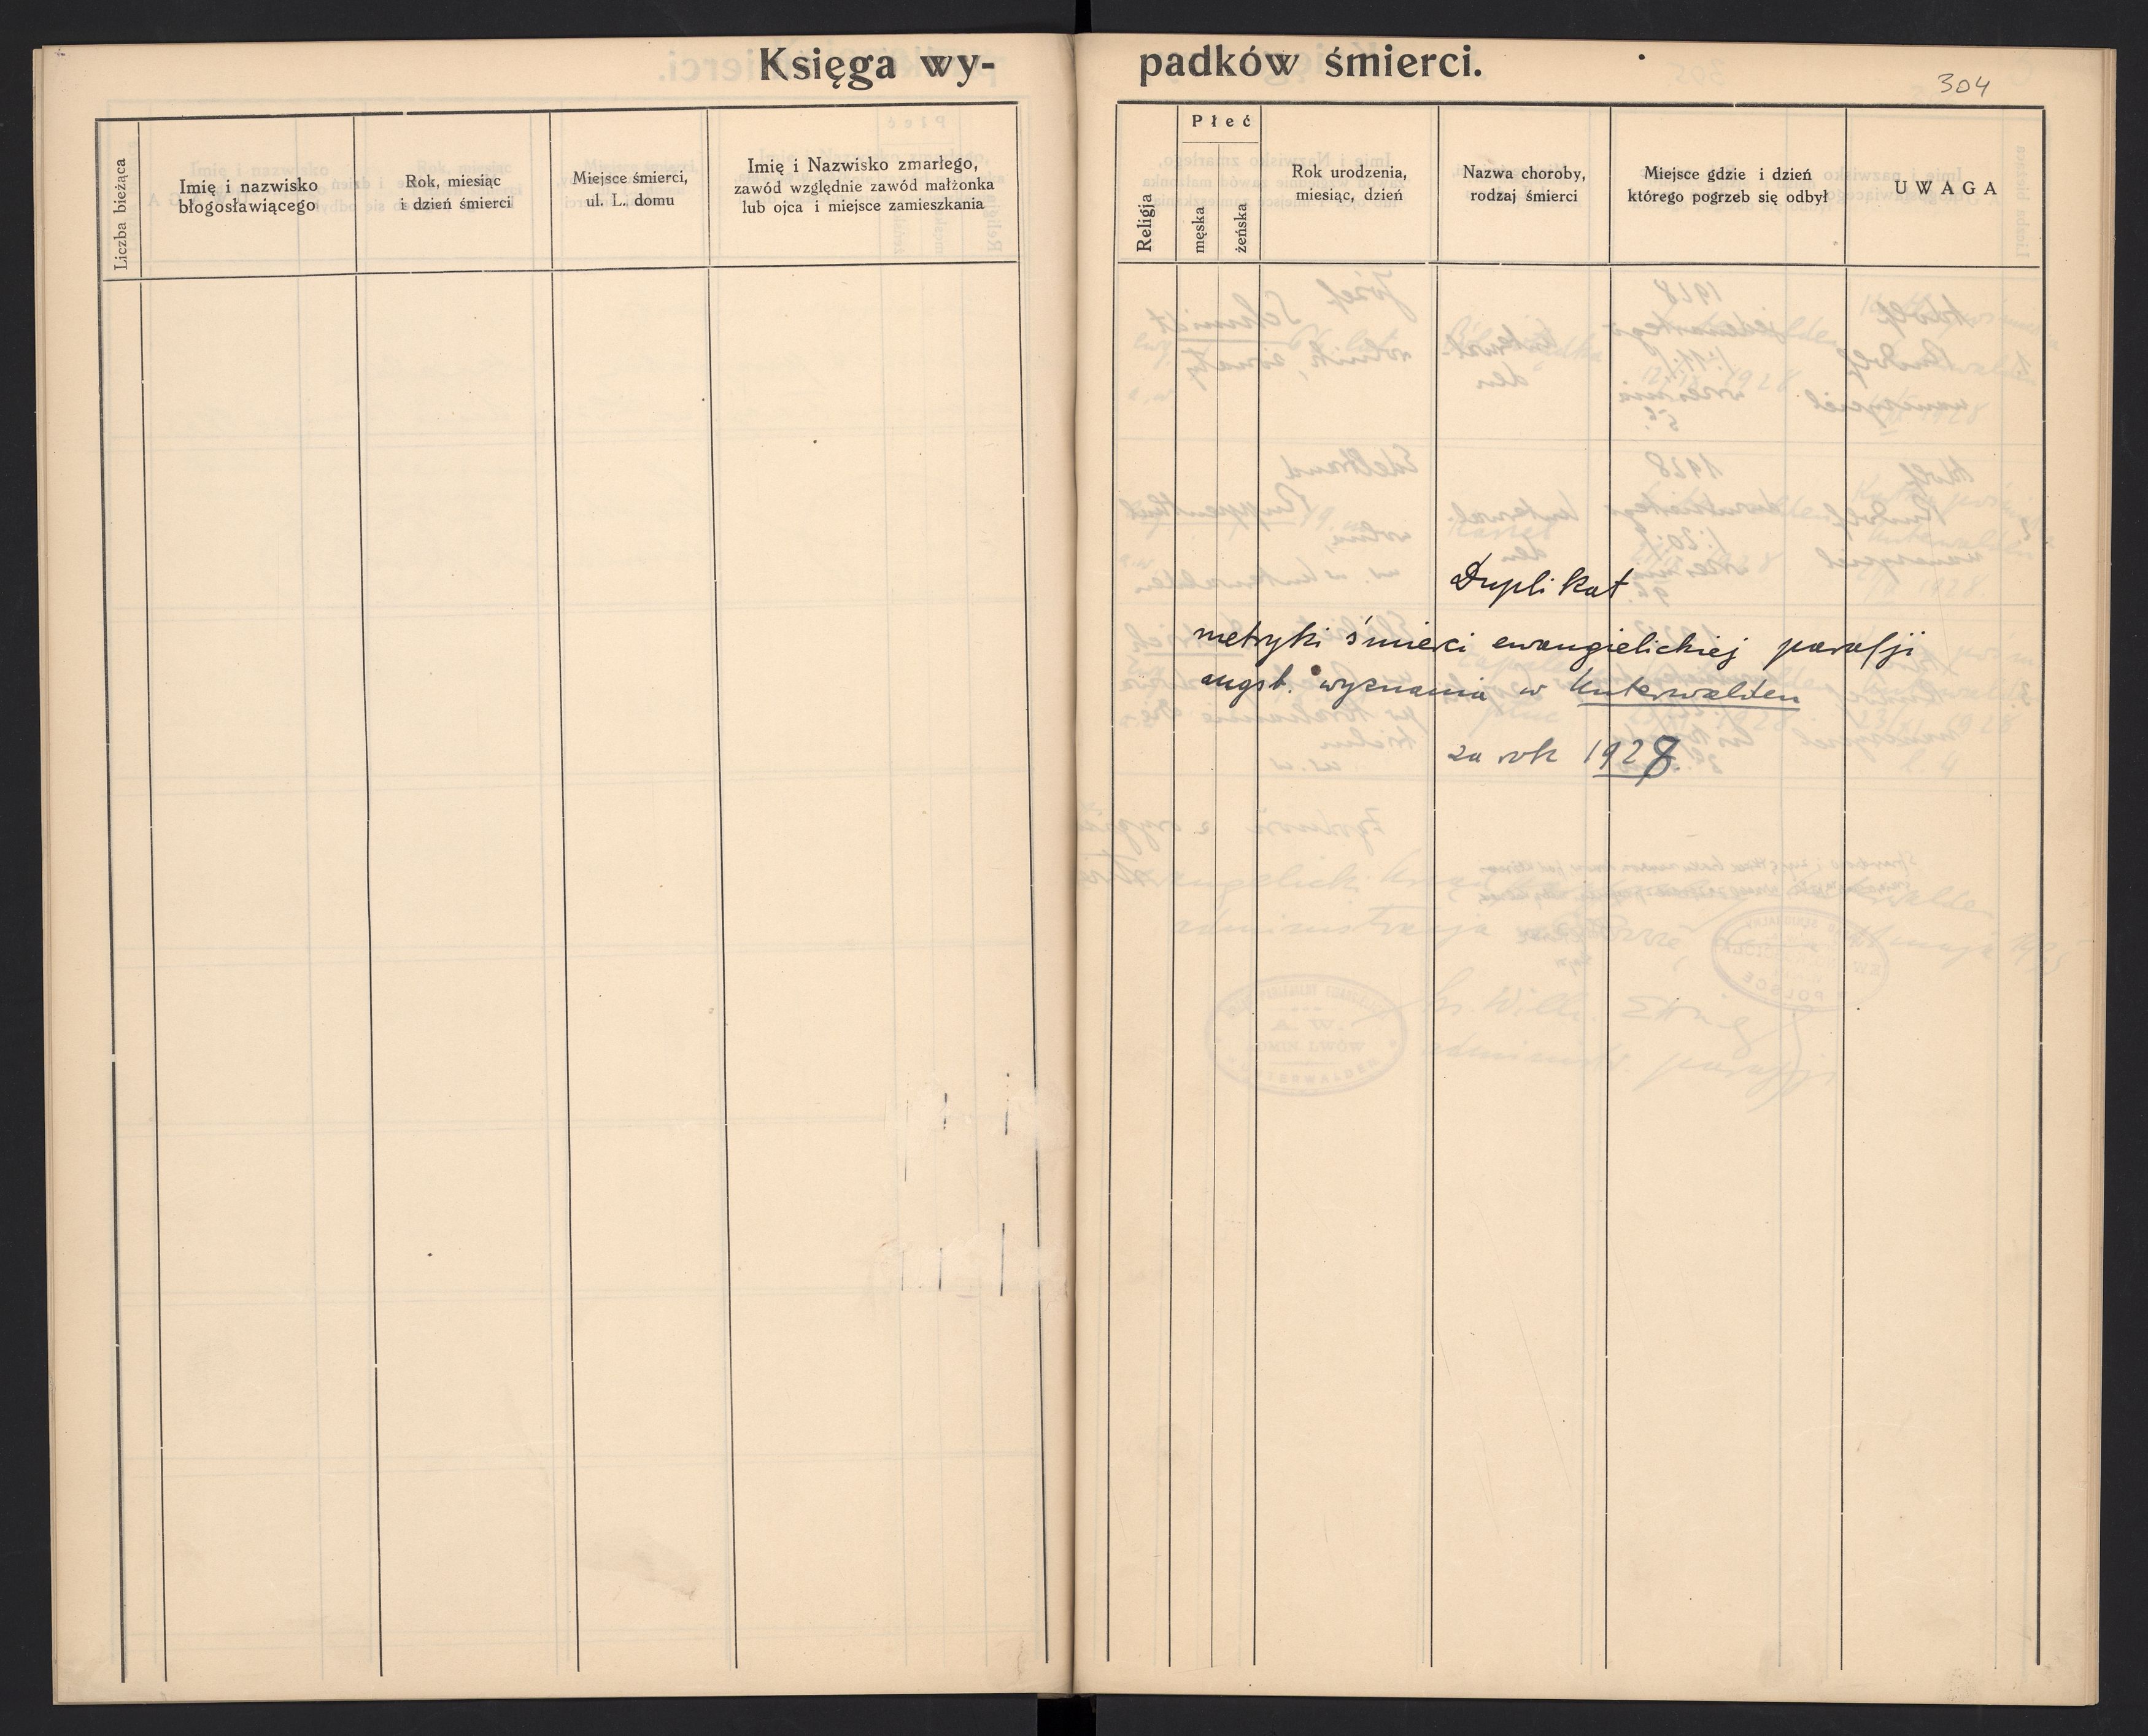 Księga wy-
padków śmierci.
304
Liczba bieżąca
Imię i nazwisko
błogosławiącego
Rok, miesiąc
i dzień śmierci
Miejsce śmierci,
ul. L. domu
Imię i Nazwisko zmarłego,
zawód względnie zawód małżonka
lub ojca i miejsce zamieszkania
Religja
Płeć
męska
żeńska
Rok urodzenia,
miesiąc, dzień
Nazwa choroby,
rodzaj śmierci
Miejsce gdzie i dzień
którego pogrzeb się odbył
UWAGA
Duplikat
metryki śmierci ewangielickiej parafji
augsb. wyznania w Unterwalden
za rok 1928.